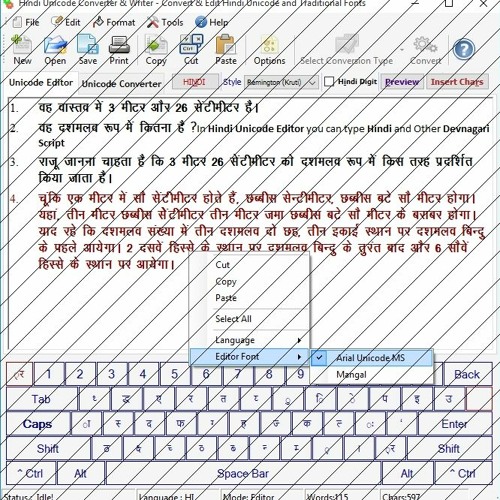 Hindi Unicode Converter & Writer - Convert & Edit Hindi Unicode and Traditional Fonts
File Edit Format Tools Help
New Open Save Print Copy Paste Options Select Conversion Type Convert
Unicode Editor Unicode Converter HINDI Style Remington (Kruti) Hindi Digit Preview Insert Chars
1. वह वास्तव में 3 मीटर और 26 सेंटीमीटर है।
2. वह दशमलव रूप में कितना है ?In Hindi Unicode Editor you can type Hindi and Other Devnagari
Script
3. राजू जानना चाहता है कि 3 मीटर 26 सेंटीमीटर को दशमलव रूप में किस तरह प्रदर्शित
किया जाता है।
4. चूंकि एक मीटर में सौ सेंटीमीटर होते हैं, छब्बीस सेन्टीमीटर, छब्बीस बटे सौ मीटर होगा।
यहां, तीन मीटर छब्बीस सेंटीमीटर तीन मीटर जमा छब्बीस बटे सौ मीटर के बराबर होगा।
याद रहे कि दशमलव संख्या में तीन दशमलव दो छह, तीन इकाई स्थान पर दशमलव बिन्दु
के पहले आयेगा। 2 दसवें हिस्से के स्थान पर दशमलव बिन्दु के तुरंत बाद और 6 सौवें
हिस्से के स्थान पर आयेगा।
Cut
Copy
Paste
Select All
Language
Editor Font
Arial Unicode MS
Mangal
1 2 3 4 5 6 7 8 9 Back
Tab
Caps Enter
Shift Shift
^ Ctrl Alt Space Bar Alt ^ Ctrl
Status: Idle! Language: HI Mode: Editor Words:115 Chars:597